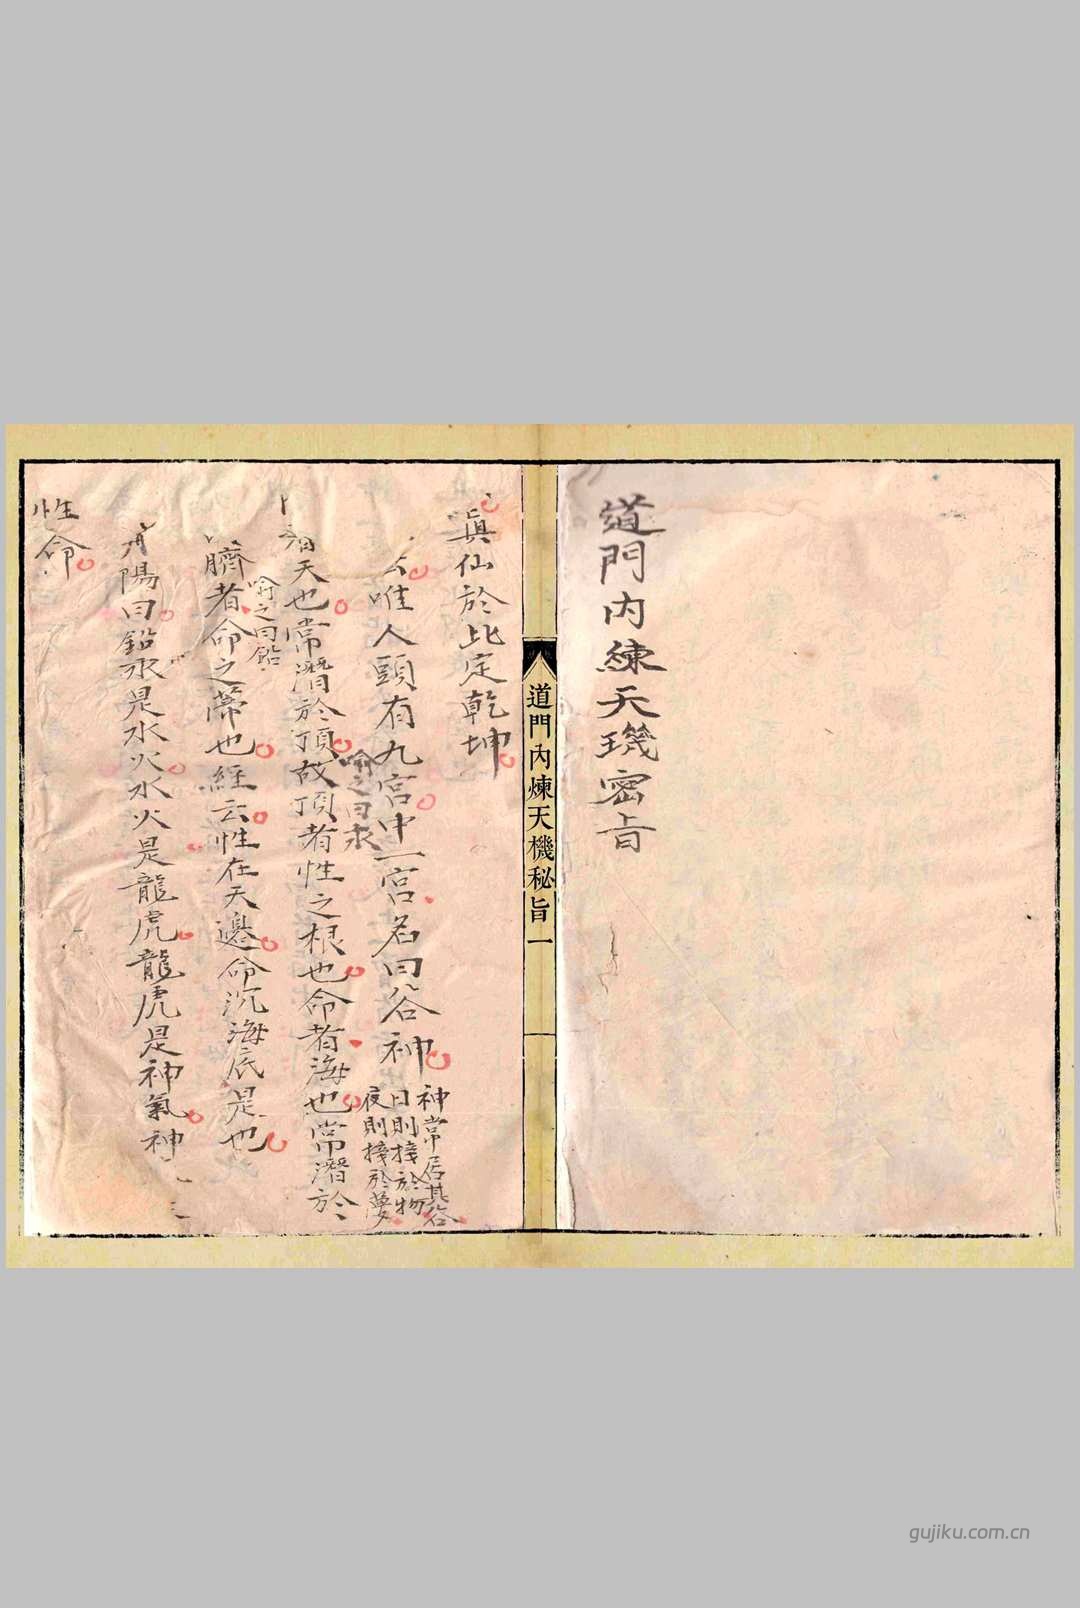 道門内練天璣密旨
道門內煉天機秘旨一
真仙於此定乾坤
唯人頭有九宮中一宮名曰谷神
神常居其谷
日則接於物
夜則接於夢
喻之曰汞
天也常潛於頂故頂者性之根也命者海也常潛於
喻之曰鉛
臍者命之蒂也經云性在天邊命沉海底是也
陽曰鉛汞是水火水火是龍虎龍虎是神氣神
性命
gujiku.com.cn